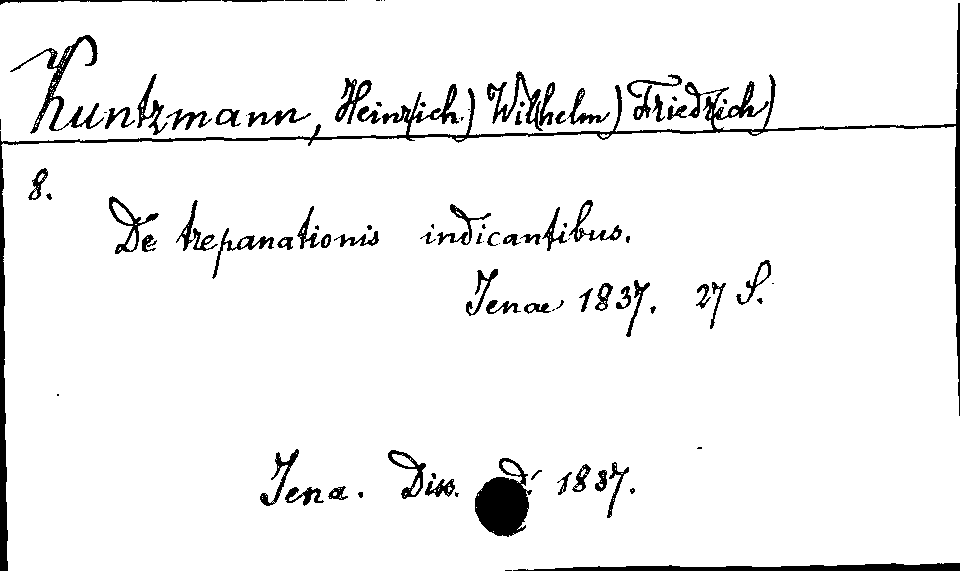 Kuntzmann, Heinr(ich) Wil(helm) Friedr(ich)
8.
De trepanationis indicantibus.
Jenae 1837. 27 S.
Jena. Diss. 1837.